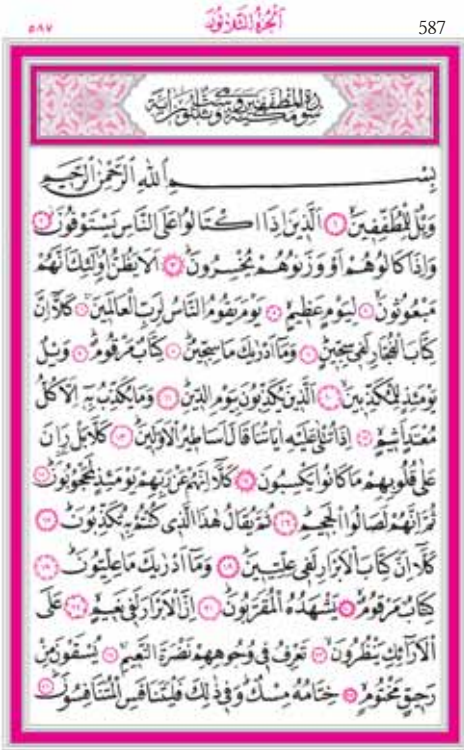 ٥٨٧ اَلْجُزْءُ الثَّلَاثُونَ 587
سُورَةُ الْمُطَفِّفِينَ مَكِّيَّةٌ وَهِيَ سِتٌّ وَثَلَاثُونَ اٰيَةً
بِسْمِ اللّٰهِ الرَّحْمٰنِ الرَّحِيمِ
وَيْلٌ لِلْمُطَفِّفِينَۙ ﴿١﴾ اَلَّذِينَ اِذَا اكْتَالُوا عَلَى النَّاسِ يَسْتَوْفُونَۘ ﴿٢﴾
وَاِذَا كَالُوهُمْ اَوْ وَزَنُوهُمْ يُخْسِرُونَۜ ﴿٣﴾ اَلَا يَظُنُّ اُو۬لٰٓئِكَ اَنَّهُمْ
مَبْعُوثُونَۙ ﴿٤﴾ لِيَوْمٍ عَظِيمٍۙ ﴿٥﴾ يَوْمَ يَقُومُ النَّاسُ لِرَبِّ الْعَالَمِينَۜ ﴿٦﴾ كَلَّٓا اِنَّ
كِتَابَ الْفُجَّارِ لَفِي سِجِّينٍۜ ﴿٧﴾ وَمَٓا اَدْرٰيكَ مَا سِجِّينٌۜ ﴿٨﴾ كِتَابٌ مَرْقُومٌۜ ﴿٩﴾ وَيْلٌ
يَوْمَئِذٍ لِلْمُكَذِّبِينَۙ ﴿١٠﴾ اَلَّذِينَ يُكَذِّبُونَ بِيَوْمِ الدِّينِۜ ﴿١١﴾ وَمَا يُكَذِّبُ بِهٖٓ اِلَّا كُلُّ
مُعْتَدٍ اَثِيمٍۙ ﴿١٢﴾ اِذَا تُتْلٰى عَلَيْهِ اٰيَاتُنَا قَالَ اَسَاطِيرُ الْاَوَّلِينَۜ ﴿١٣﴾ كَلَّا بَلْ رَانَ
عَلٰى قُلُوبِهِمْ مَا كَانُوا يَكْسِبُونَ ﴿١٤﴾ كَلَّٓا اِنَّهُمْ عَنْ رَبِّهِمْ يَوْمَئِذٍ لَمَحْجُوبُونَۜ ﴿١٥﴾
ثُمَّ اِنَّهُمْ لَصَالُوا الْجَحِيمِۜ ﴿١٦﴾ ثُمَّ يُقَالُ هٰذَا الَّذِي كُنْتُمْ بِهٖ تُكَذِّبُونَۜ ﴿١٧﴾
كَلَّٓا اِنَّ كِتَابَ الْاَبْرَارِ لَفِي عِلِّيِّينَۜ ﴿١٨﴾ وَمَٓا اَدْرٰيكَ مَا عِلِّيُّونَۜ ﴿١٩﴾
كِتَابٌ مَرْقُومٌۙ ﴿٢٠﴾ يَشْهَدُهُ الْمُقَرَّبُونَۜ ﴿٢١﴾ اِنَّ الْاَبْرَارَ لَفِي نَعِيمٍۙ ﴿٢٢﴾ عَلَى
الْاَرَٓائِكِ يَنْظُرُونَۙ ﴿٢٣﴾ تَعْرِفُ فِي وُجُوهِهِمْ نَضْرَةَ النَّعِيمِۚ ﴿٢٤﴾ يُسْقَوْنَ مِنْ
رَحِيقٍ مَخْتُومٍۙ ﴿٢٥﴾ خِتَامُهُ مِسْكٌۜ وَفِي ذٰلِكَ فَلْيَتَنَافَسِ الْمُتَنَافِسُونَۜ ﴿٢٦﴾